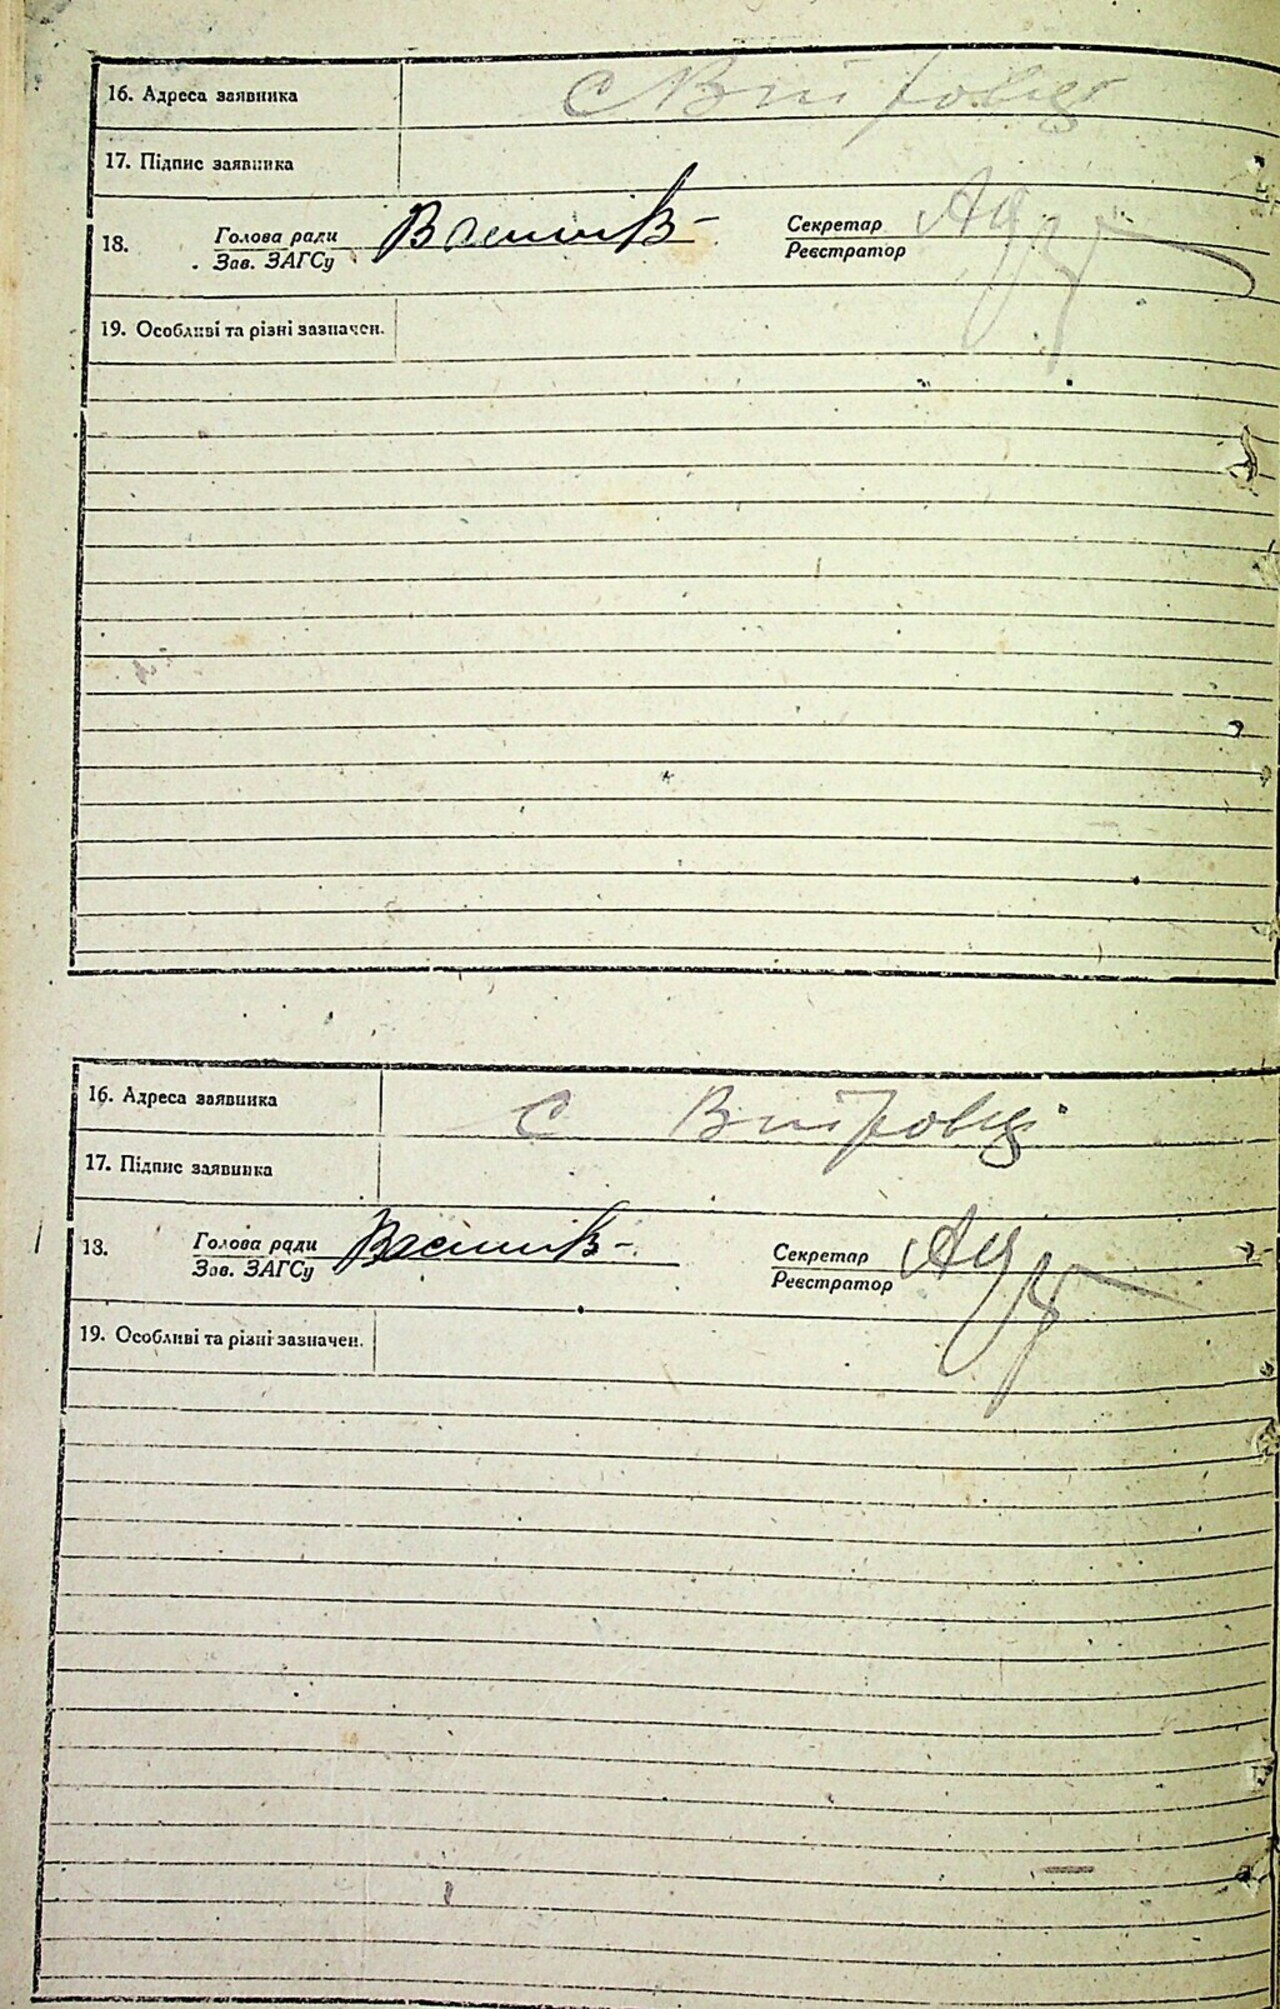 16. Адреса заявника
с Вітровці
17. Підпис заявника
18. Голова ради
Зав. ЗАГСу
Секретар
Реєстратор
19. Особливі та різні зазначен.
16. Адреса заявника
с Вітровці
17. Підпис заявника
18. Голова ради
Зав. ЗАГСу
Секретар
Реєстратор
19. Особливі та різні зазначен.